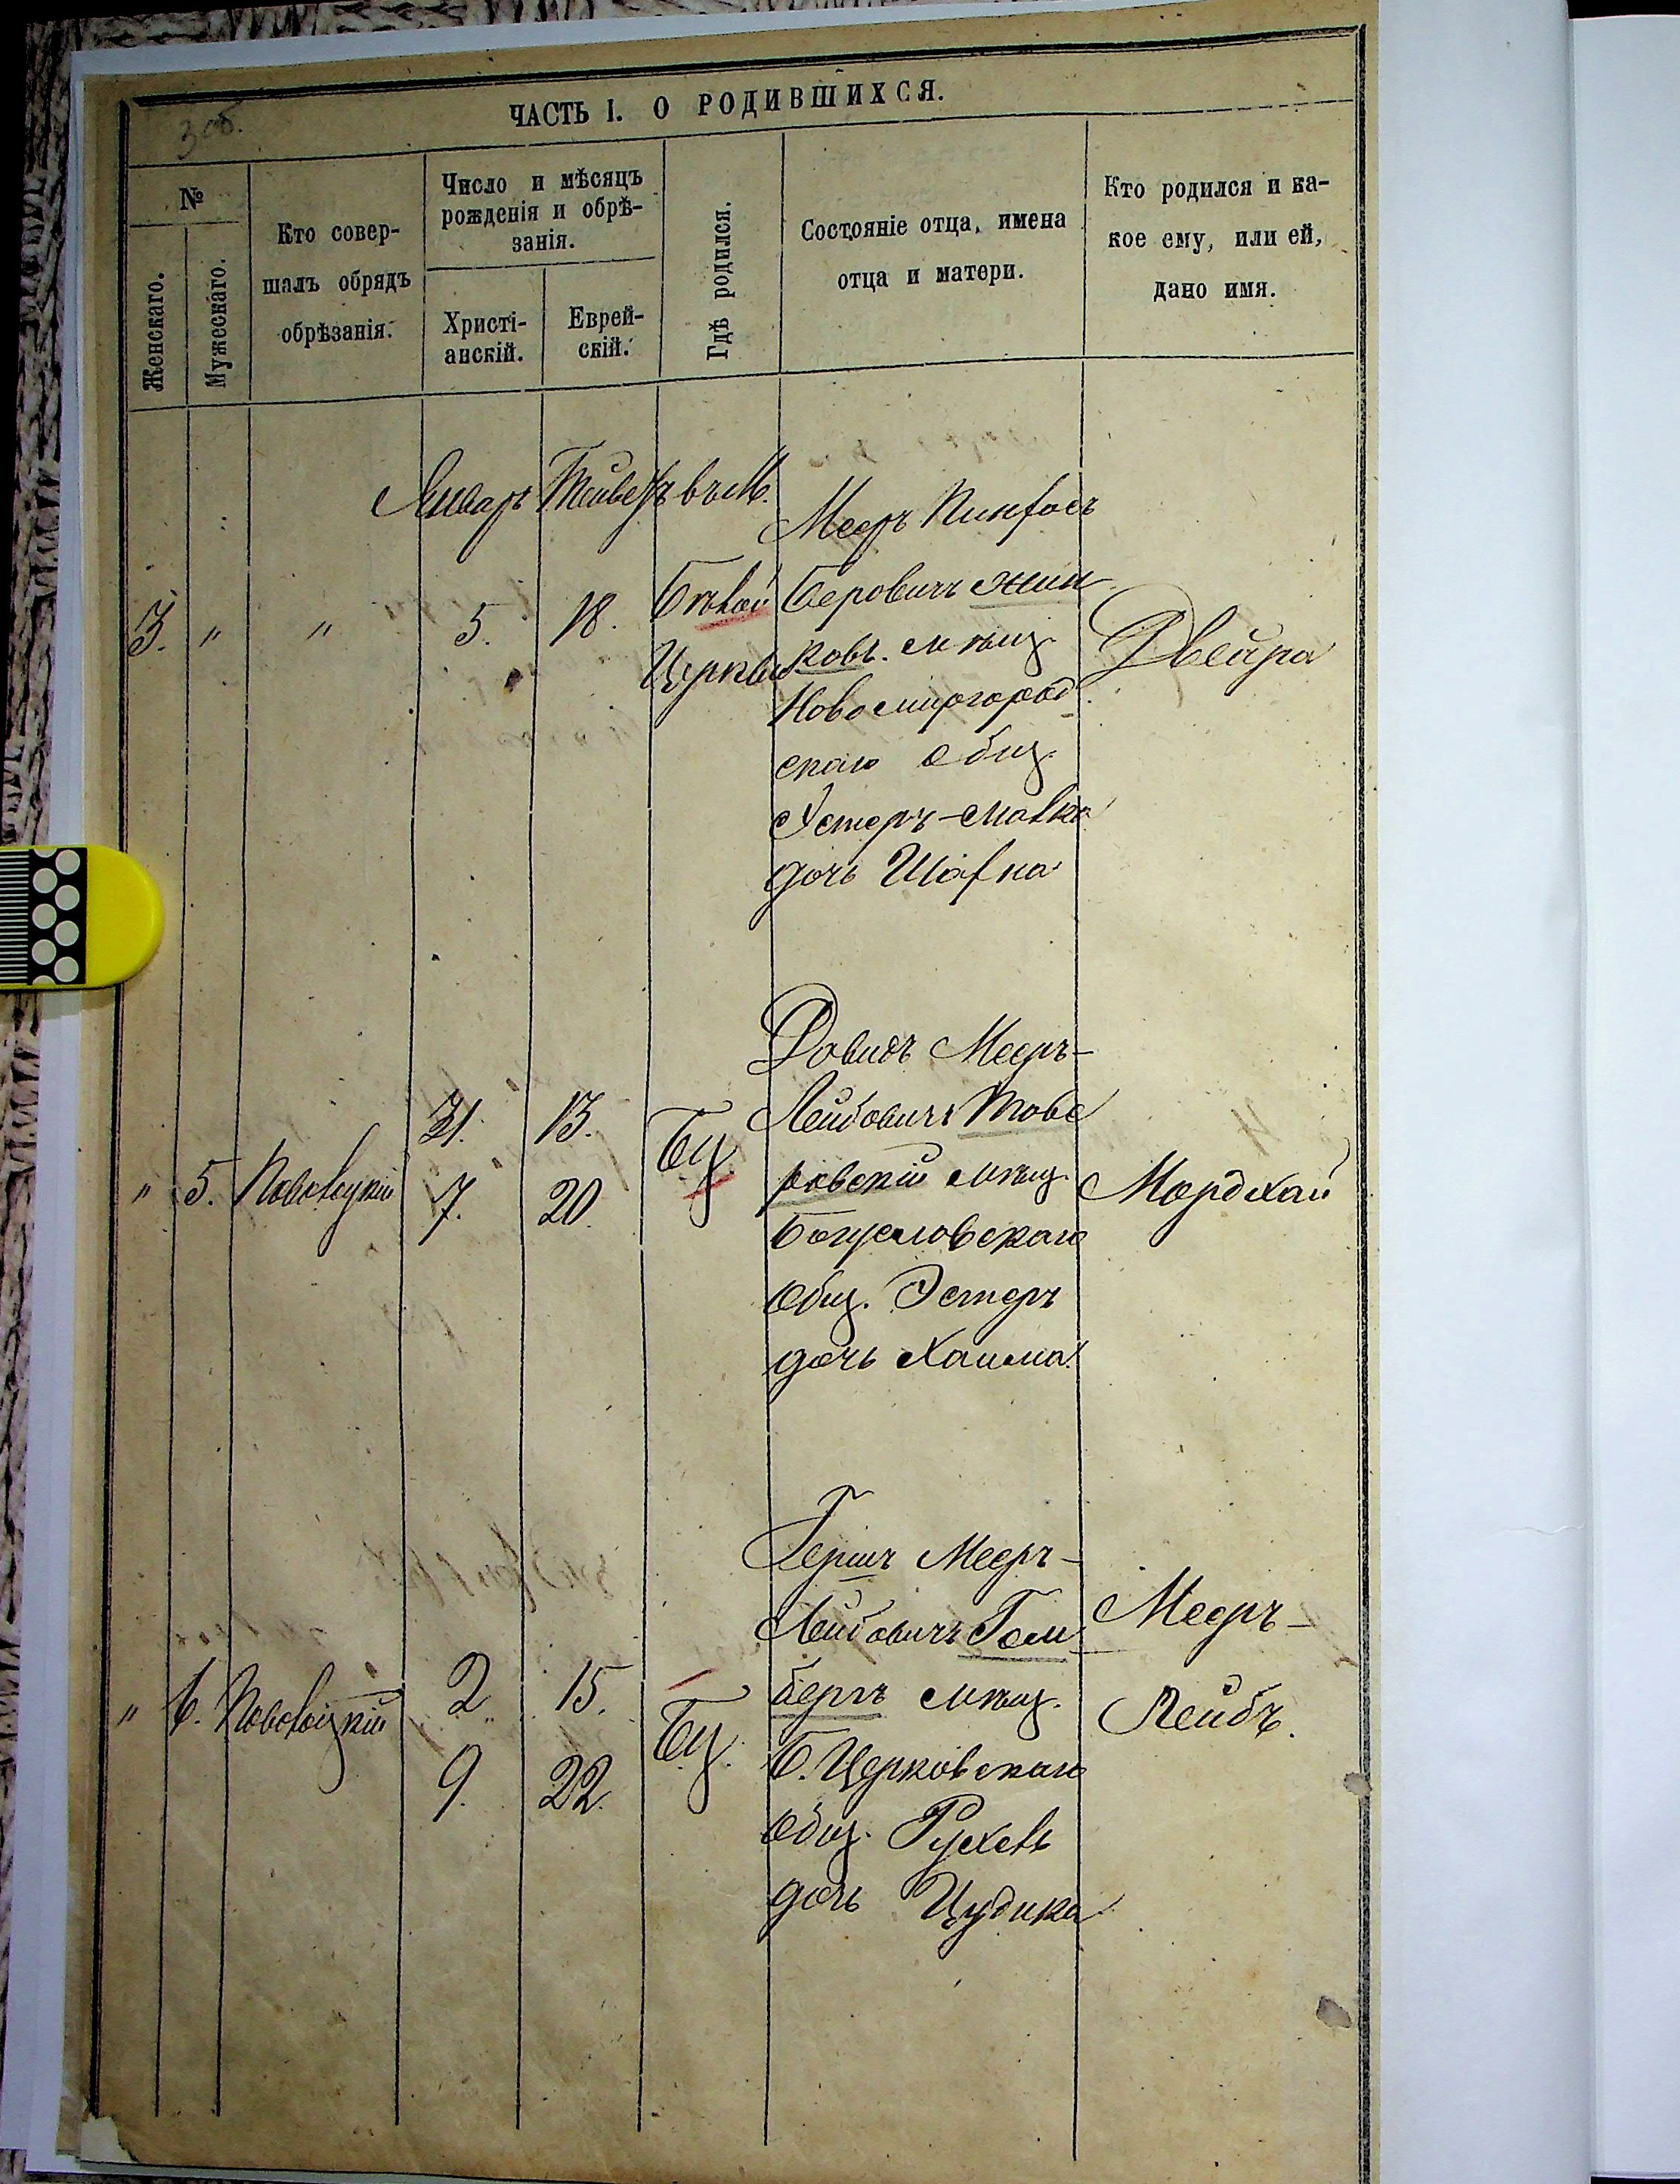 3 об.
ЧАСТЬ I. О РОДИВШИХСЯ.
№
Женскаго.
Мужескаго.
Кто совер-
шалъ обрядъ
обрѣзанія.
Число и мѣсяцъ
рожденія и обрѣ-
занія.
Христі-
анскій.
Еврей-
скій.
Гдѣ родился.
Состояніе отца, имена
отца и матери.
Кто родился и ка-
кое ему, или ей,
дано имя.
Январь Тейвесъ въ м.
3. " " 5. 18.
Бѣлой
Церкви
Мееръ Пинхосъ
Беровичъ Жин
ковъ. мѣщ.
Новомиргород
скаго общ.
Эстеръ-Малка
дочь Шахна
Двейра
" 5. Поволоцкій
31. 13.
7. 20.
БЦ
Довидъ Мееръ-
Лейбовичъ Тове
ровскій мѣщ.
Богуславскаго
общ. Эстеръ
дочь Хаима
Мордхай
" 6. Поволоцкій
2 15.
9. 22.
БЦ.
Гершъ Мееръ-
Лейбовичъ Гом
бергъ мѣщ.
Б. Церковскаго
общ. Рухель
дочь Цудика
Мееръ-
Лейбъ.